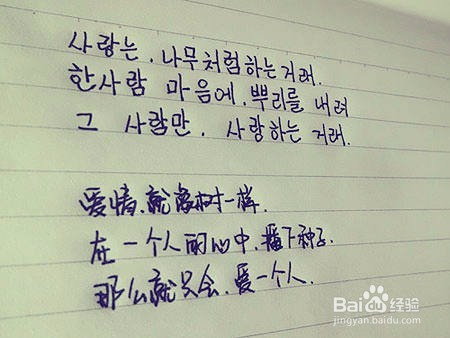 사랑는. 나무처럼하는거래.
한사람 마음에. 뿌리를 내려
그 사람만. 사랑하는 거래.
爱情.就像树一样.
在一个人的心中.播下种子.
那么就只会.爱一个人.
Baidu经验
jingyan.baidu.com